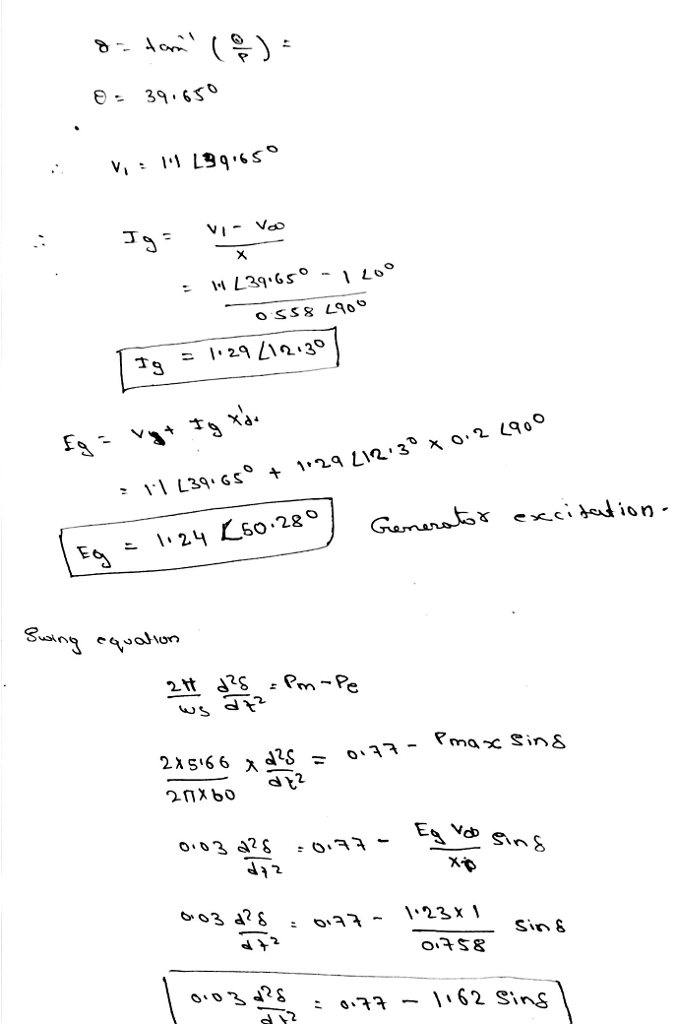 θ = tan⁻¹ (Q/P) =
θ = 39.65°
∴ V₁ = 1.1 ∠39.65°
∴ Ig = (V₁ - V∞)/X
= (1.1 ∠39.65° - 1 ∠0°)/(0.558 ∠90°)
Ig = 1.29 ∠12.3°
Eg = Vg + Ig X'd.
= 1.1 ∠39.65° + 1.29 ∠12.3° × 0.2 ∠90°
Eg = 1.24 ∠50.28° Generator excitation.
Swing equation
2H/ws d²δ/dt² = Pm - Pe
(2×5.166)/(2π×60) × d²δ/dt² = 0.77 - Pmax sinδ
0.03 d²δ/dt² = 0.77 - (Eg V∞)/X sinδ
0.03 d²δ/dt² = 0.77 - (1.23×1)/0.758 sinδ
0.03 d²δ/dt² = 0.77 - 1.62 sinδ